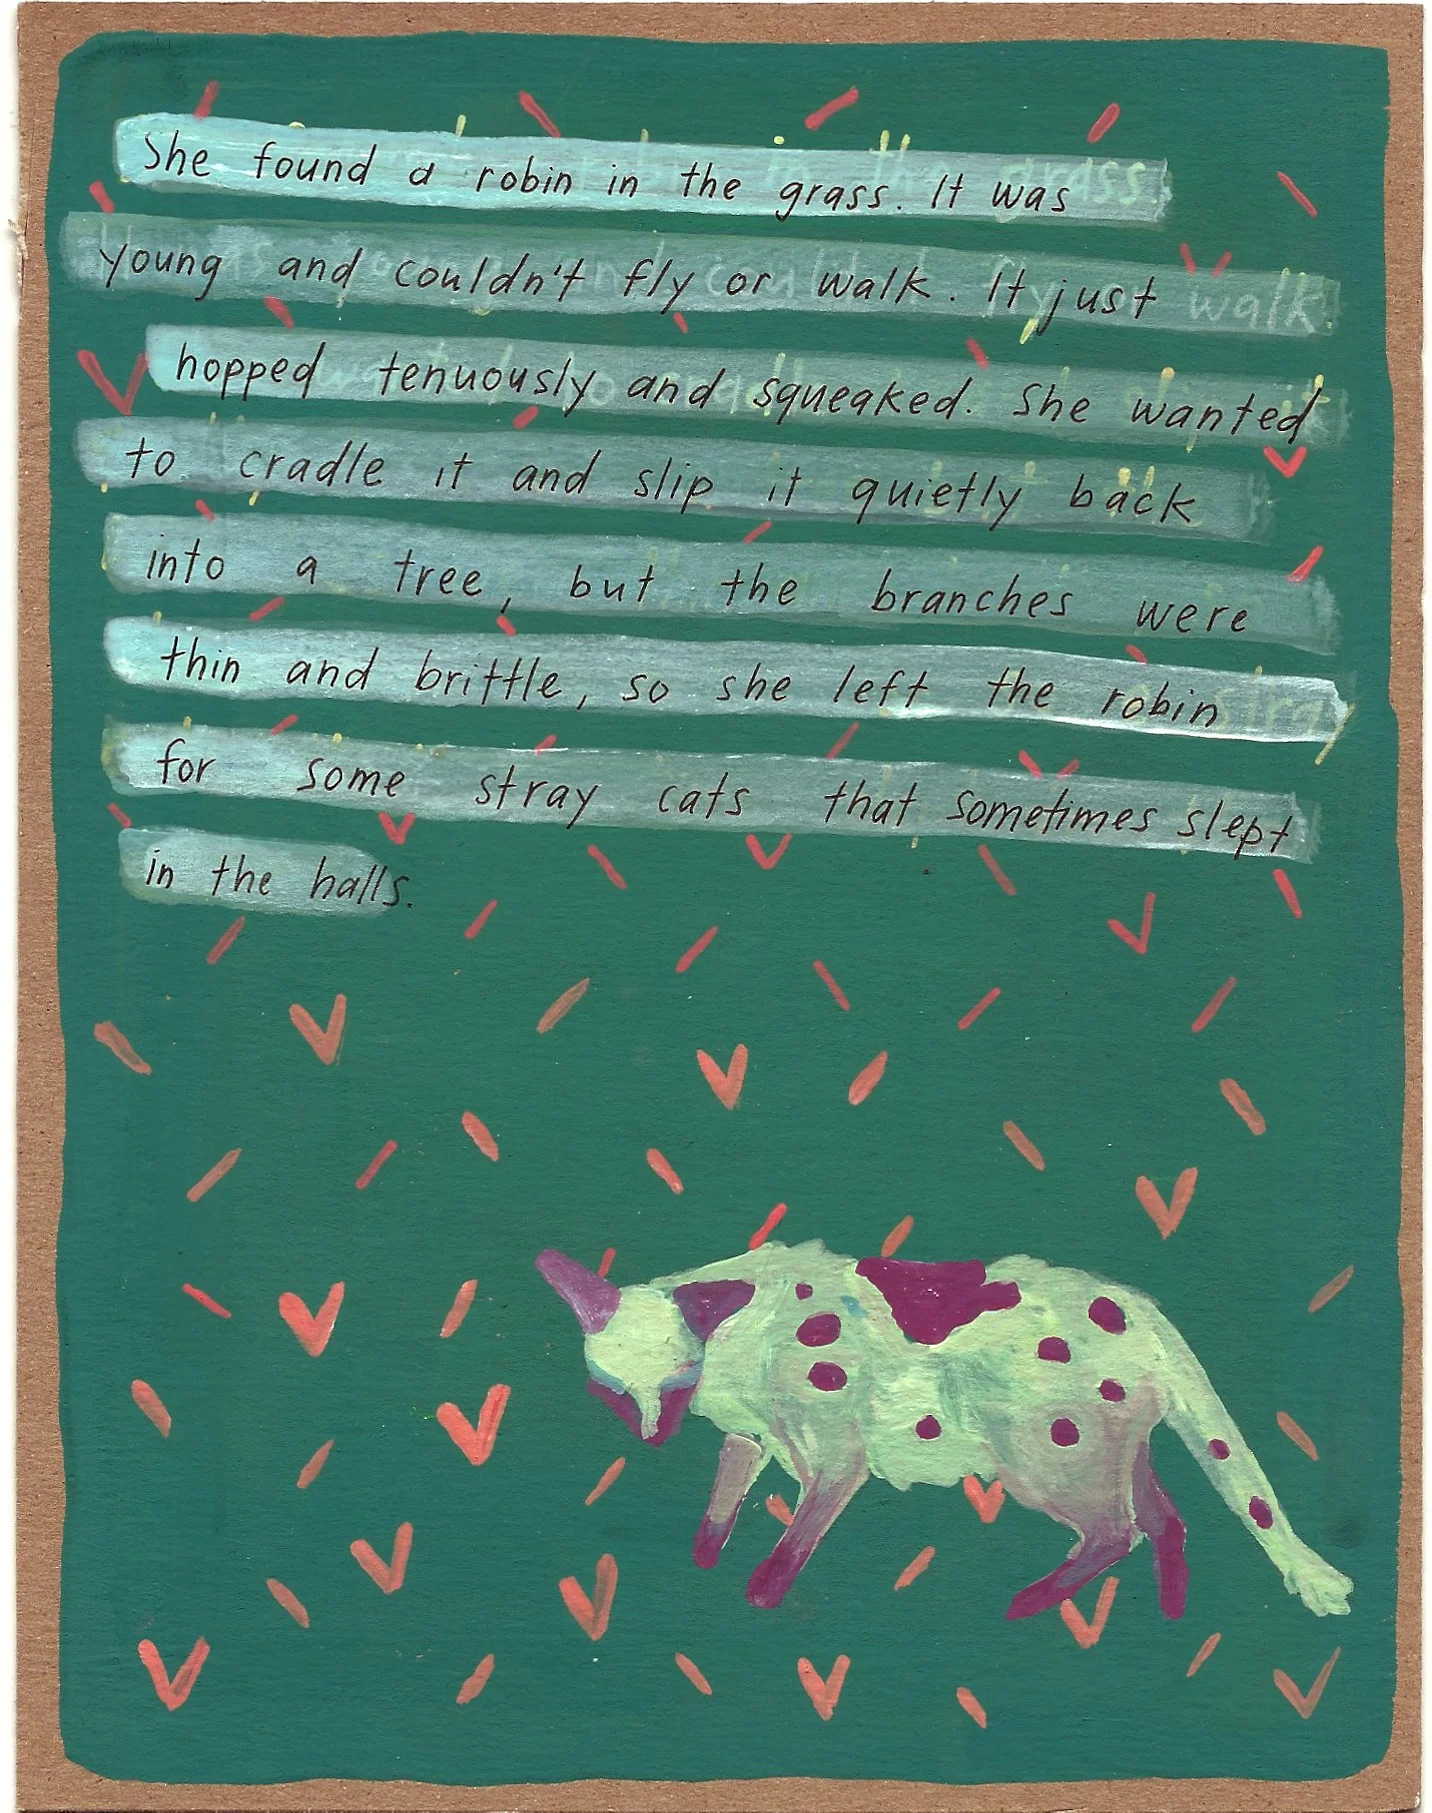 She found a robin in the grass. It was
young and couldn't fly or walk. It just
hopped tenuously and squeaked. She wanted
to cradle it and slip it quietly back
into a tree, but the branches were
thin and brittle, so she left the robin
for some stray cats that sometimes slept
in the halls.